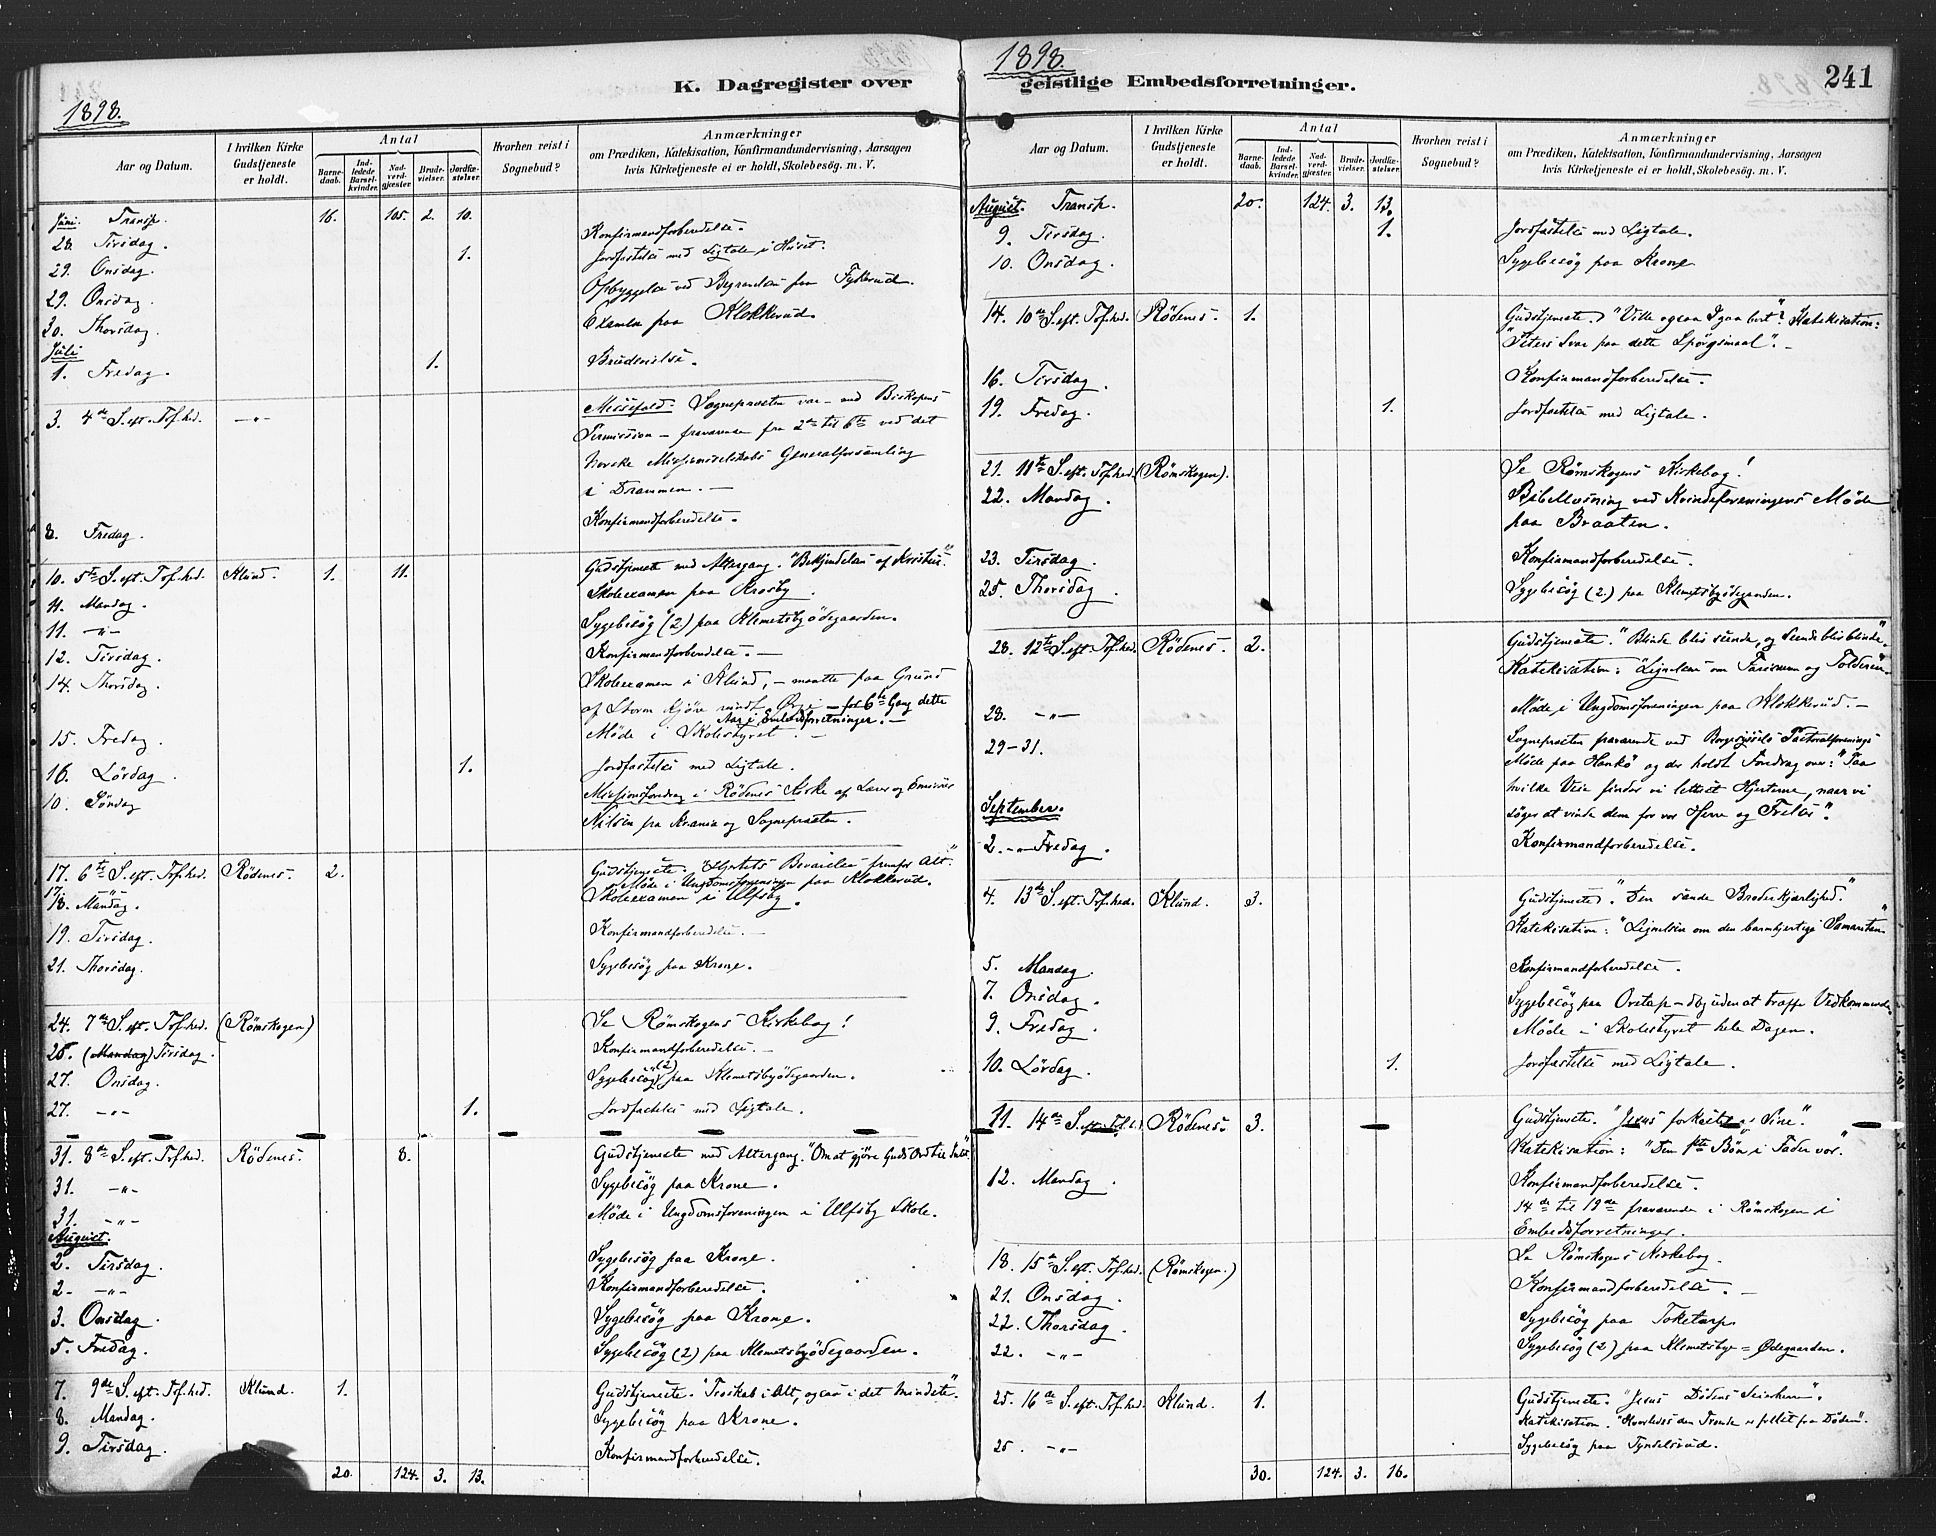 1898.
K. Dagregister over
Aar og Datum.
I hvilken Kirke Gudstjeneste er holdt.
Antal
Barnedaab.
Indledede Barselkvinder.
Nadverdgjæster
Brudevielser.
Jordfæstelser.
Hvorhen reist i Sognebud?
Anmærkninger
om Prædiken, Katekisation, Konfirmandundervisning, Aarsagen
hvis Kirketjeneste ei er holdt, Skolebesøg. m. V.
Juni. Transp. 16. 105. 2. 10.
28. Tirsdag. Konfirmandforberedelse.
29. Onsdag. 1. Jordfæstelse med Ligtale i Huset.
29. Onsdag. Opbyggelse ved Begravelse fra
30. Thorsdag. Examen paa Klokkerud.
Juli
1. Fredag. 1. Brudevielse.
3. 4de S. eft. Tref.hed. —"— Messefald. Sognepræsten var – med Biskopens
Permission – fraværende fra 2den til 6te ved det
norske Missionsselskabs Generalforsamling
i Drammen. —
8. Fredag. Konfirmandforberedelse.
10. 5te S. eft. Tref.hed. Klund. 1. 11. Gudstjeneste med Altergang. "Bekjendelsen af Kristus."
11. Mandag. Skoleexamen paa Krosby.
11. —"— Sygebesøg (2) paa Klemetsbyødegaarden.
12. Tirsdag. Konfirmandforberedelse. —
14. Thorsdag. Skoleexamen i Klund, – maatte paa Grund
af Storm kjøre rundt Ørje – for 6te Gang dette
Aar i Embedsforretninger. —
15. Fredag. Møde i Skolestyret. —
16. Lördag. 1. Jordfæstelse med Ligtale.
10. Söndag Missionsforedrag i Rödenes Kirke af Lærer og Emissær
Nilsen fra Krania og Sognepræsten.
17. 6te S. eft. Tref.hed. Rödenes. 2. Gudstjeneste. "Hjertets Bevarelse fremfor Alt."
17. Møde i Ungdomsforeningen paa Klokkerud.
18. Mandag. Skoleexamen i Ulfsby.
19. Tirsdag. Konfirmandforberedelse. —
21. Thorsdag. Sygebesøg paa Krone.
24. 7de S. eft. Tref.hed. (Römskogen) Se Römskogens Kirkebog!
26. (Mandag) Tirsdag. Konfirmandforberedelse. —
27. Onsdag. Sygebesøg (2) paa Klemetsbyødegaarden.
27. —"— 1. Jordfæstelse med Ligtale.
31. 8de S. eft. Tref.hed. Rödenes. 8. Gudstjeneste med Altergang. "Om at gjöre Guds Ord til Intet."
31. —"— Sygebesøg paa Krone.
31. —"— Møde i Ungdomsforeningen i Ulfsby Skole.
August.
2. Tirsdag. Sygebesøg paa Krone.
2. —"— Konfirmandforberedelse.
3. Onsdag. Sygebesøg paa Krone.
5. Fredag. Sygebesøg (2) paa Klemetsbyødegaarden.
7. 9de S. eft. Tref.hed. Klund. 1. Gudstjeneste. "Troskab i Alt, ogsaa i det mindste".
8. Mandag. Sygebesøg paa Krone.
9. Tirsdag. Konfirmandforberedelse.
20. 124. 3. 13.
1898.
geistlige Embedsforretninger.
241
Aar og Datum.
I hvilken Kirke Gudstjeneste er holdt.
Antal
Barnedaab.
Indledede Barselkvinder.
Nadverdgjæster.
Brudevielser.
Jordfæstelser.
Hvorhen reist i Sognebud?
Anmærkninger
om Prædiken, Katekisation, Konfirmandundervisning, Aarsagen
hvis Kirketjeneste ei er holdt, Skolebesøg. m. V.
August. Transp. 20. 124. 3. 13.
9. Tirsdag. 1. Jordfæstelse med Ligtale.
10. Onsdag. Sygebesøg paa Krone
14. 10de S. eft. Tref.hed. Rödenes. 1. Gudstjeneste. "Ville ogsaa I gaa bort"? Katekisation:
"Peters Svar paa dette Spörgsmaal". —
16. Tirsdag. Konfirmandforberedelse.
19. Fredag. 1. Jordfæstelse med Ligtale.
21. 11te S. eft. Tref.hed. (Römskogen). Se Römskogens Kirkebog!
22. Mandag. Bibellæsning ved Kvindeforeningens Møde
paa Braaten.
23. Tirsdag. Konfirmandforberedelse.
25. Thorsdag. Sygebesøg (2) paa Klemetsbyødegaarden.
28. 12te S. eft. Tref.hed. Rödenes. 2. Gudstjeneste. "Blinde blir seende, og Seende blir blinde".
Katekisation: "Lignelsen om Farisæeren og Tolderen".
28. —"— Møde i Ungdomsforeningen paa Klokkerud. —
29–31. Sognepræsten fraværende ved Borgesyssels Pastoralforenings
Møde paa Hankö og der holdt Foredrag over: "Paa
hvilke Veie finder vi lettest Hjerterne, naar vi
söger at vinde dem for vor Herre og Frelser".
September.
2. Fredag. Konfirmandforberedelse.
4. 13de S. eft. Tref.hed. Klund. 3. Gudstjeneste. "Den sande Broderkjærlighed."
Katekisation: "Lignelsen om den barmhjertige Samaritan"
5. Mandag. Konfirmandforberedelse.
7. Onsdag. Sygebesøg paa uden at træffe Vedkommende.
9. Fredag. Møde i Skolestyret hele Dagen.
10. Lördag. 1. Jordfæstelse med Ligtale.
11. 14de S. eft. Rödenes. 3. Gudstjeneste. "Jesus forkastet af Sine".
Katekisation: "Den 1ste Bön i Fader vor."
12. Mandag. Konfirmandforberedelse.
14de til 19de fraværende i Römskogen i
Embedsforretninger.
18. 15de S. eft. Tref.hed. (Römskogen.) Se Römskogens Kirkebog.
21. Onsdag. Konfirmandforberedelse. —
22. Thorsdag. Sygebesøg paa Toketorp
22. —"— Sygebesøg (2) paa Klemetsby = Ødegaarden.
25. 16de S. eft. Tref.hed. Klund. 1. Gudstjeneste. "Jesus Dödens Seierherre".
Katekisation. "Hvorledes den Troende er frelst fra Døden".
25. —"— Sygebesøg paa
30. 124. 3. 16.